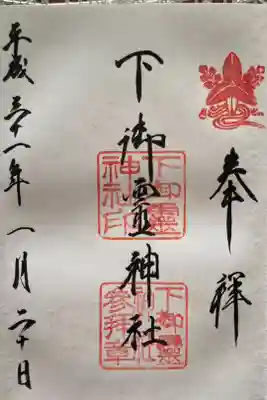 奉拝
下御霊神社
平成三十一年一月二十日
下御靈
神社印
下御靈
神社
参拝章